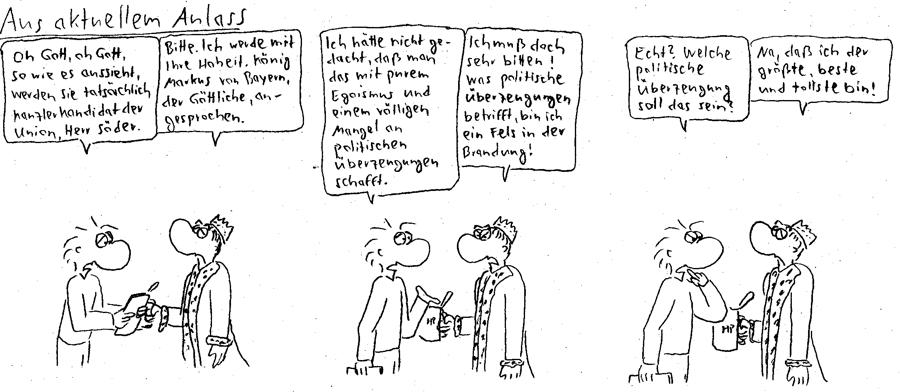 Aus aktuellem Anlass
Oh Gott, oh Gott,
so wie es aussieht,
werden sie tatsächlich
kanzlerkandidat der
Union, Herr Söder.
Bitte. Ich werde mit
Ihre Hoheit, König
Markus von Bayern,
der Göttliche, an-
gesprochen.
Ich hätte nicht ge-
dacht, daß man
das mit purem
Egoismus und
einem völligen
Mangel an
politischen
Überzeugungen
schafft.
Ich muß doch
sehr bitten!
was politische
Überzeugungen
betrifft, bin ich
ein Fels in der
Brandung!
Echt? Welche
politische
Überzeugung
soll das sein?
Na, daß ich der
größte, beste
und tollste bin!
HP
HP